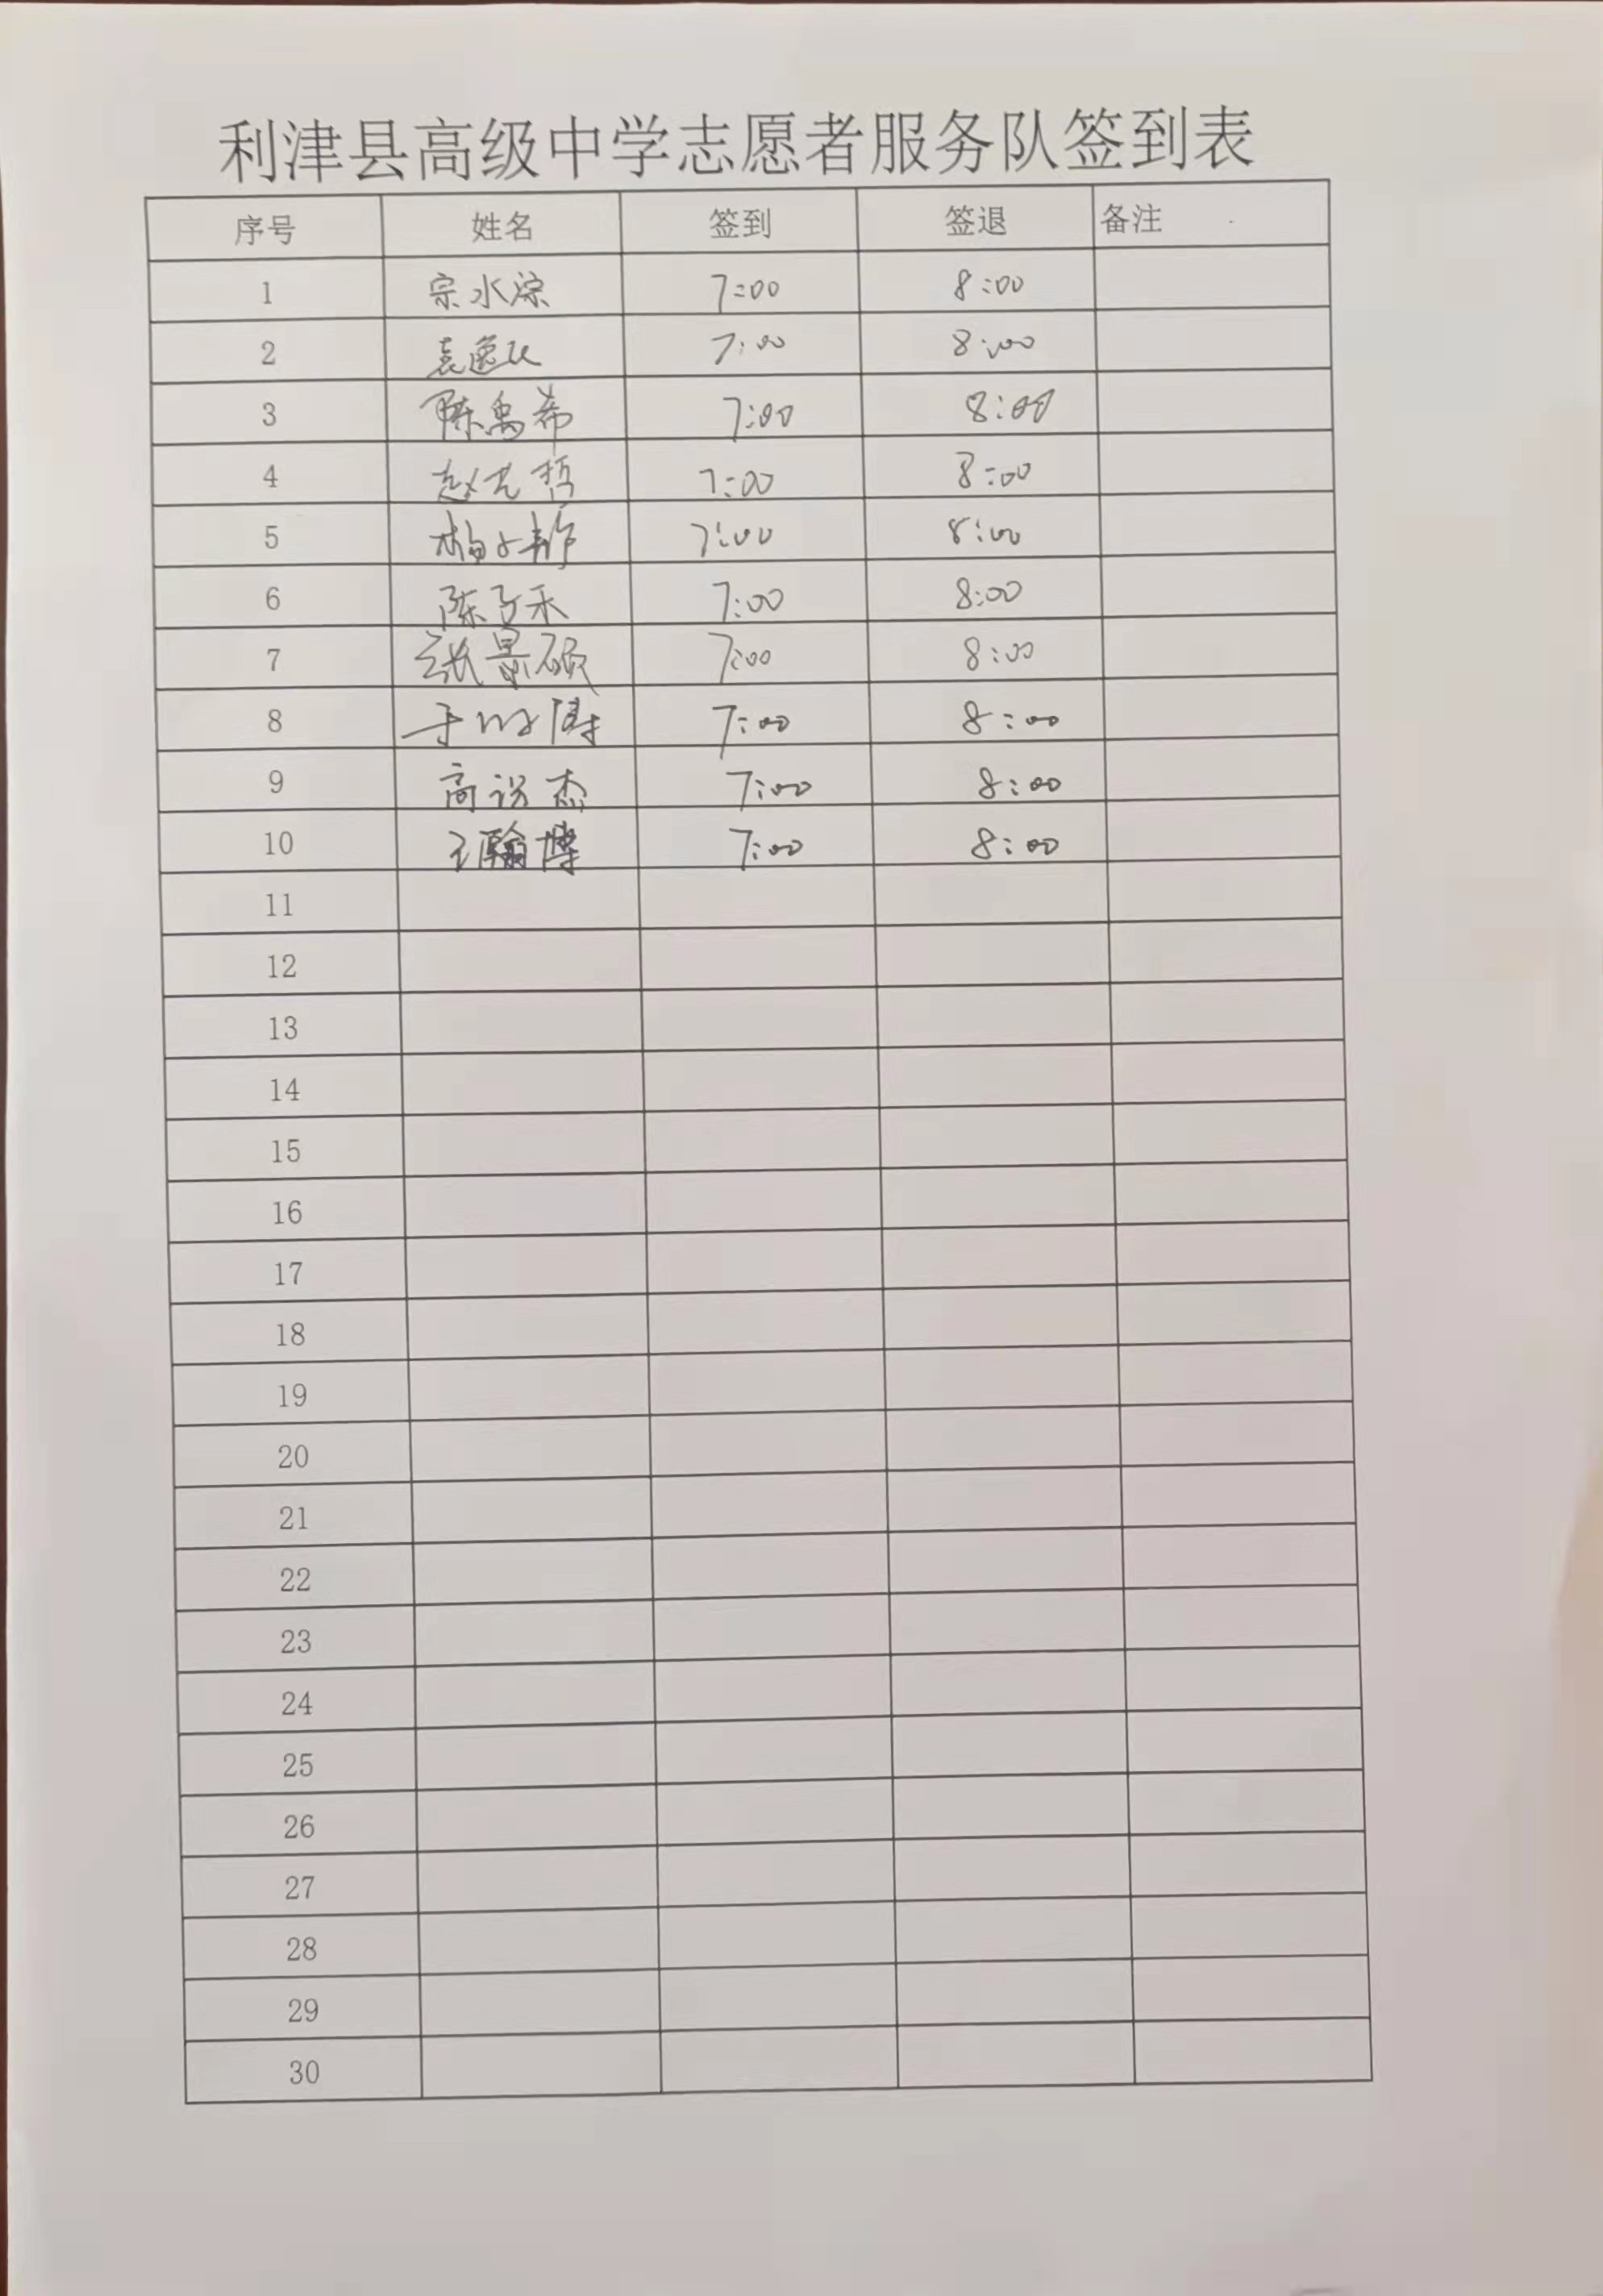 利津县高级中学志愿者服务队签到表
序号 姓名 签到 签退 备注
1 宗水淙 7:00 8:00
2 袁逸 7:00 8:00
3 陈禹希 7:00 8:00
4 赵 哲 7:00 8:00
5 7:00 8:00
6 陈子禾 7:00 8:00
7 张景硕 7:00 8:00
8 于 涛 7:00 8:00
9 高 杰 7:00 8:00
10 王翰博 7:00 8:00
11
12
13
14
15
16
17
18
19
20
21
22
23
24
25
26
27
28
29
30